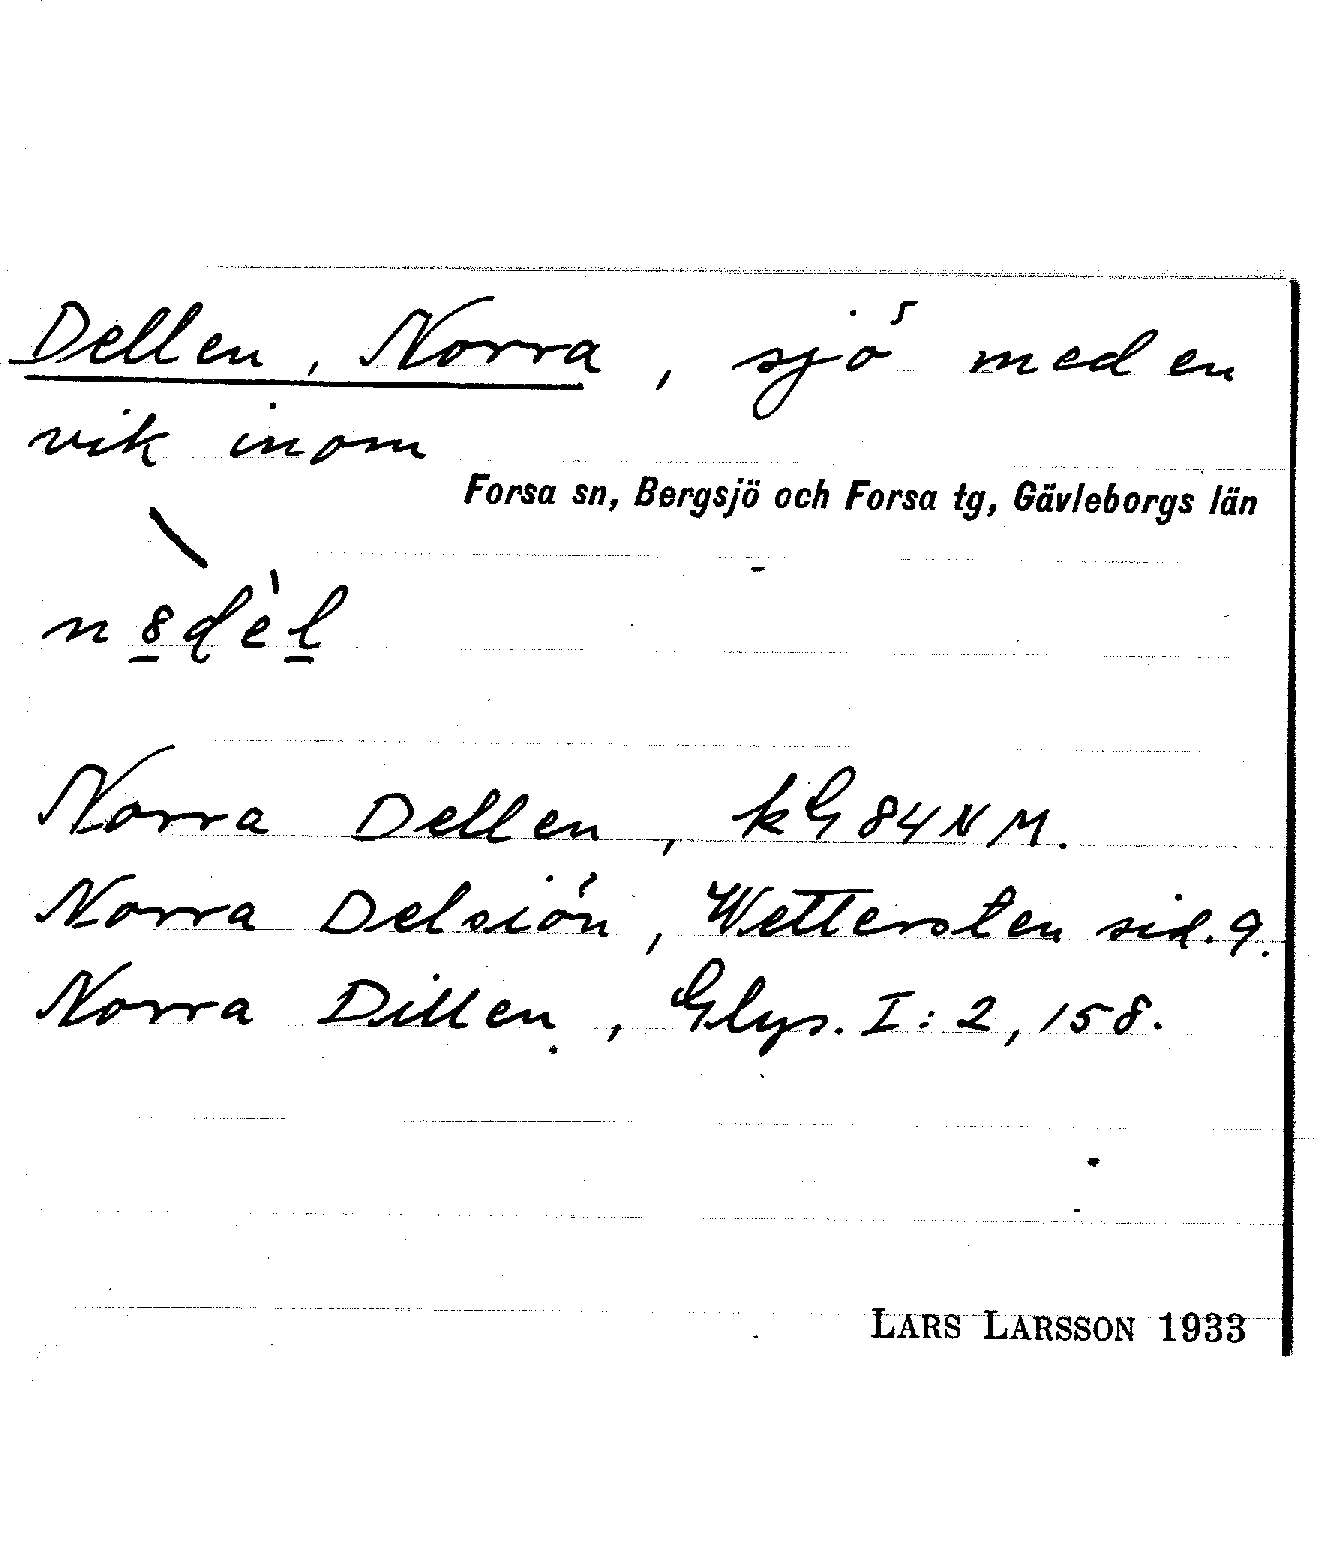 Dellen, Norra, sjö med en
vik inom
Forsa sn, Bergsjö och Forsa tg, Gävleborgs län
Norra Dellen, kG 84 N M.
Norra Delsiön, Wettersten sid. 9.
Norra Dillen, Glys. I: 2, 158.
LARS LARSSON 1933